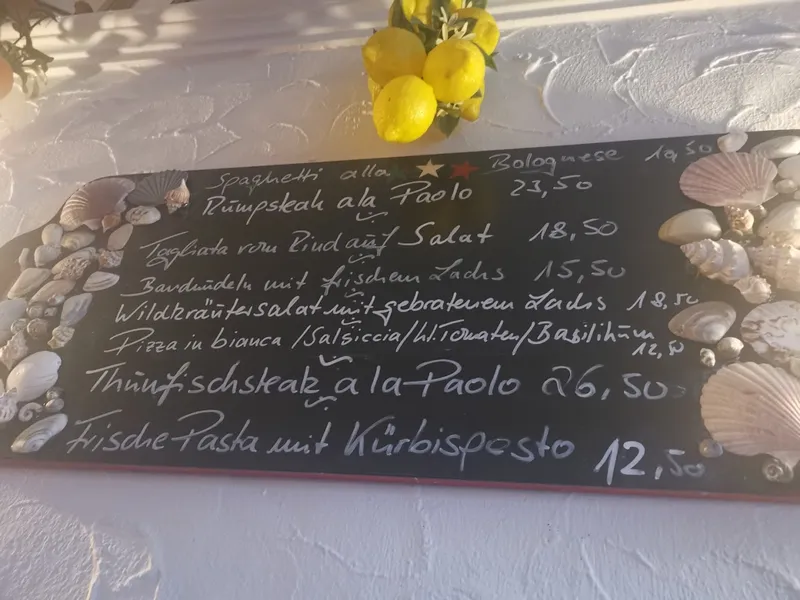 Spaghetti alla Bolognese 10,50
Rumpsteak ala Paolo 23,50
Tagliata vom Rind auf Salat 18,50
Bandnudeln mit frischem Lachs 15,50
Wildkräutersalat mit gebratenem Lachs 18,50
Pizza in bianca /Salsiccia/ki.Tomaten/Basilikum
12,50
Thunfischsteak a la Paolo 26,50
Frische Pasta mit Kürbispesto 12,50